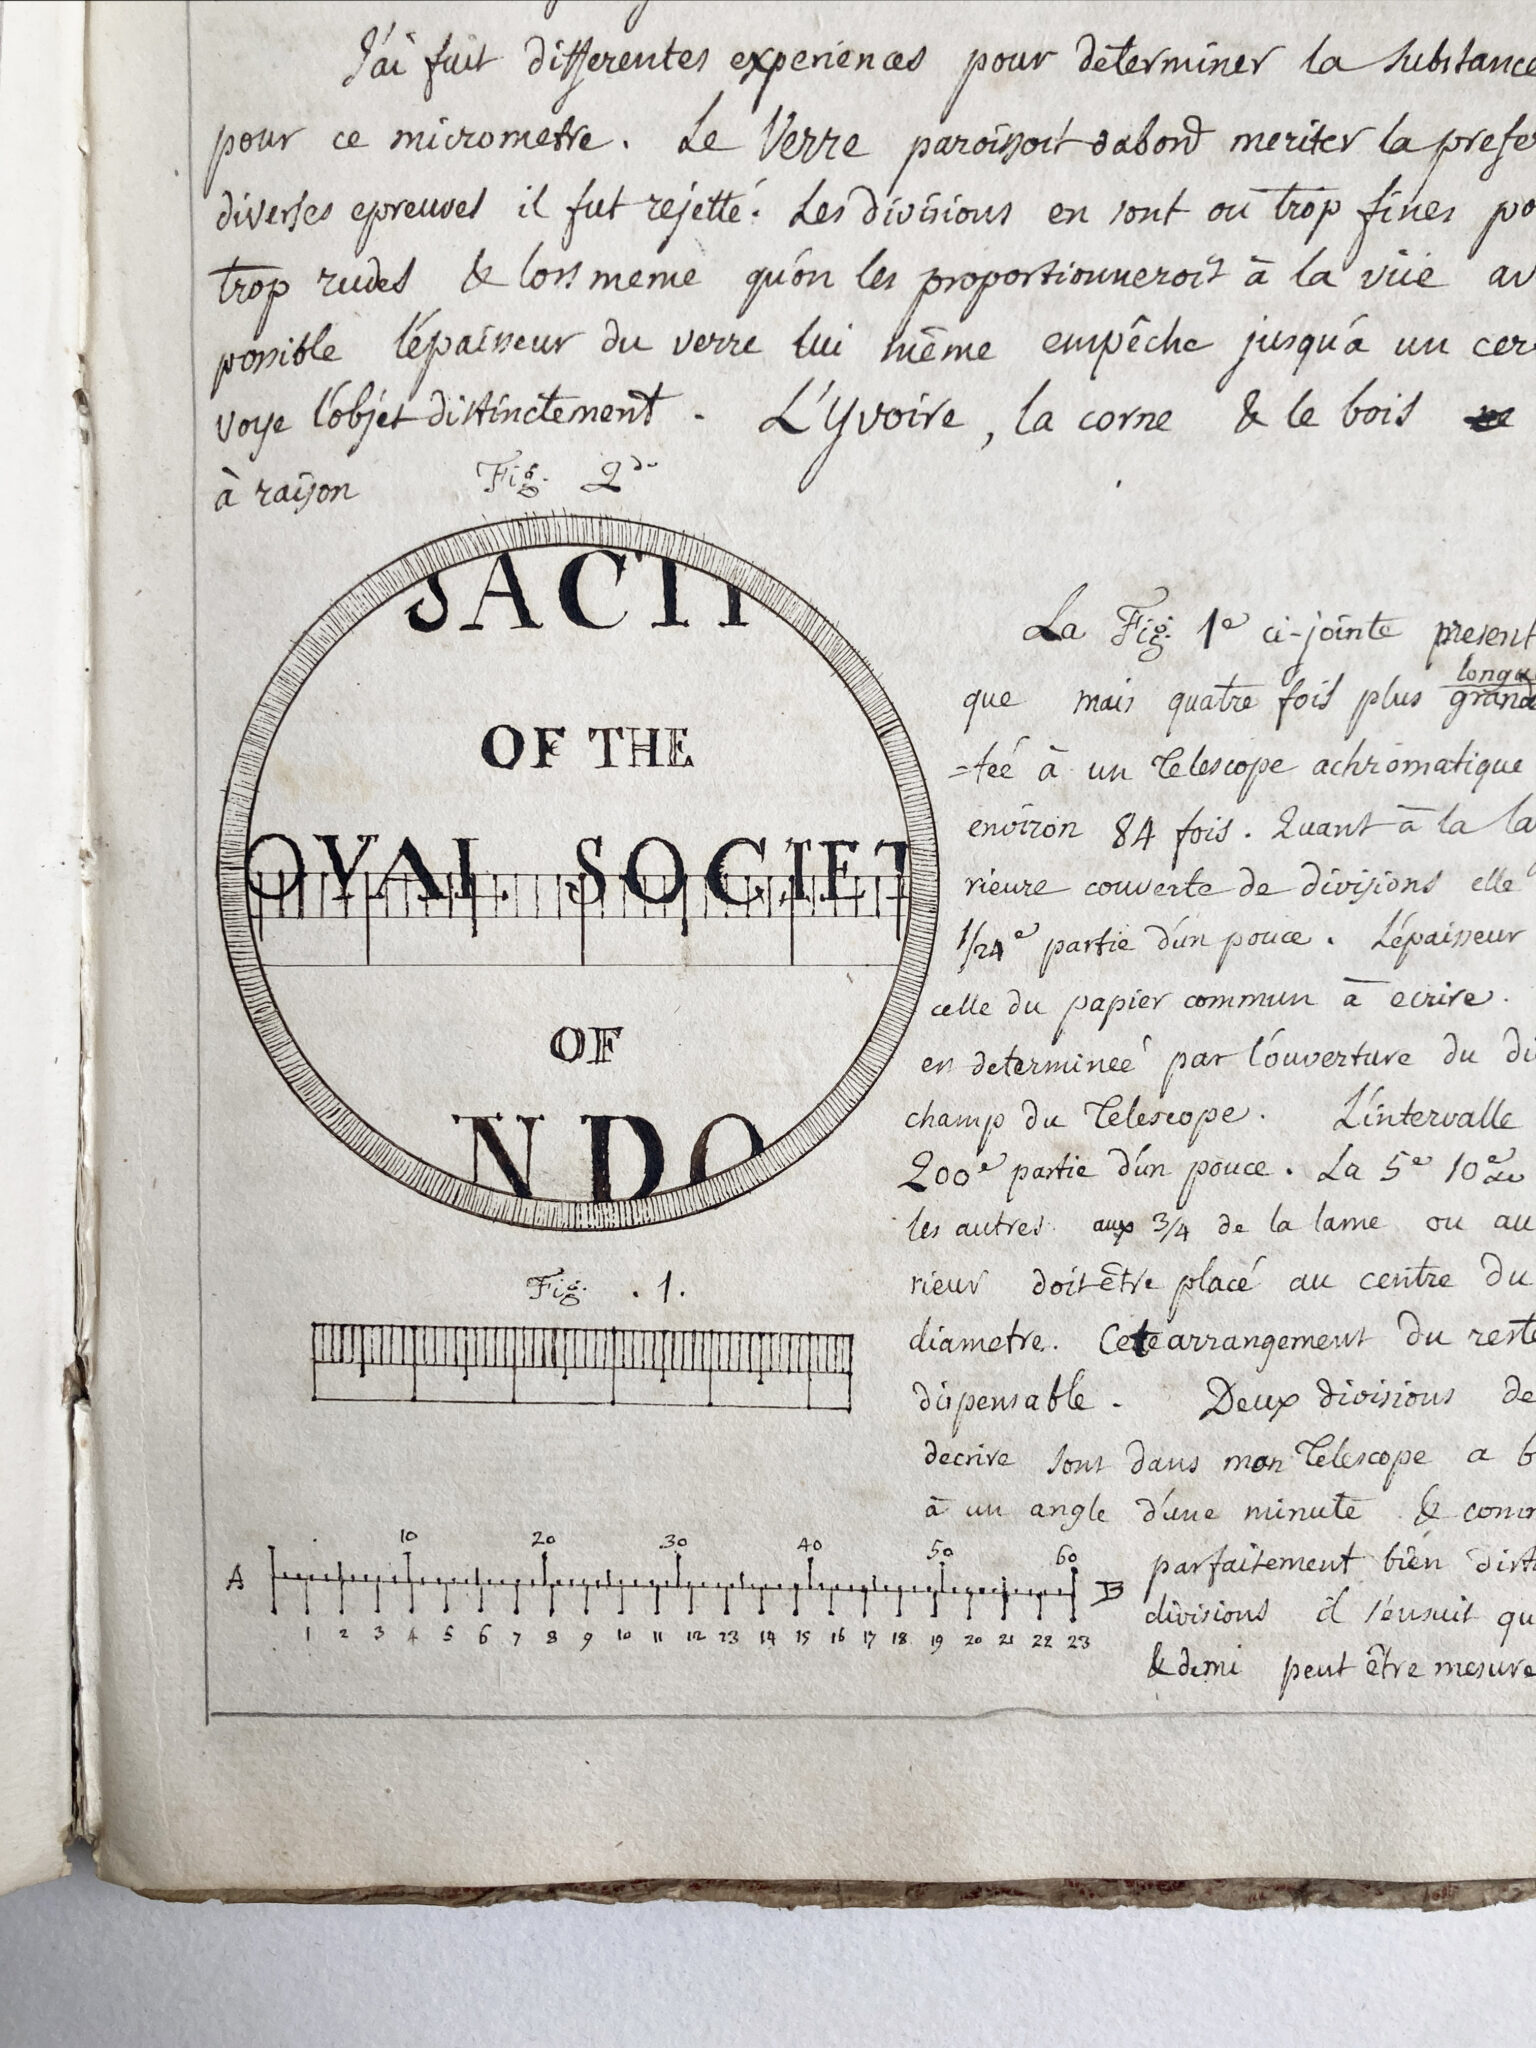 J'ai fait differentes experiences pour determiner la substance
pour ce micrometre. Le Verre paroissoit dabord meriter la prefe
diverses epreuves il fut rejetté. Les divisions en sont ou trop fines po
trop rudes & lors meme qu'on les proportionneroit à la vüe av
possible l'épaisseur du verre lui même empêche jusqu'à un cer
voye l'objet distinctement. L'Yvoire, la corne & le bois
à raison
Fig. 2de
SACTI
OF THE
OYAL SOCIET
OF
NDO
La Fig. 1e ci-jointe present
longu
que mais quatre fois plus grand
=teé à un Telescope achromatique
environ 84 fois. Quant à la la
rieure couverte de divisions elle
1/24e partie d'un pouce. L'épaisseur
celle du papier commun à ecrire.
en determineé par l'ouverture du di
champ du Telescope. L'intervalle
200e partie d'un pouce. La 5e 10e de
les autres aux 3/4 de la lame ou au
rieur doit être placé au centre du
diametre. Cete arrangement du reste
dispensable. Deux divisions de
decrire sont dans mon Telescope a b
à un angle d'une minute & comm
parfaitement bien dist
divisions il s'ensuit qu
& demi peut être mesure
Fig. . 1.
10 20 30 40 50 60
A B
1 2 3 4 5 6 7 8 9 10 11 12 13 14 15 16 17 18 19 20 21 22 23